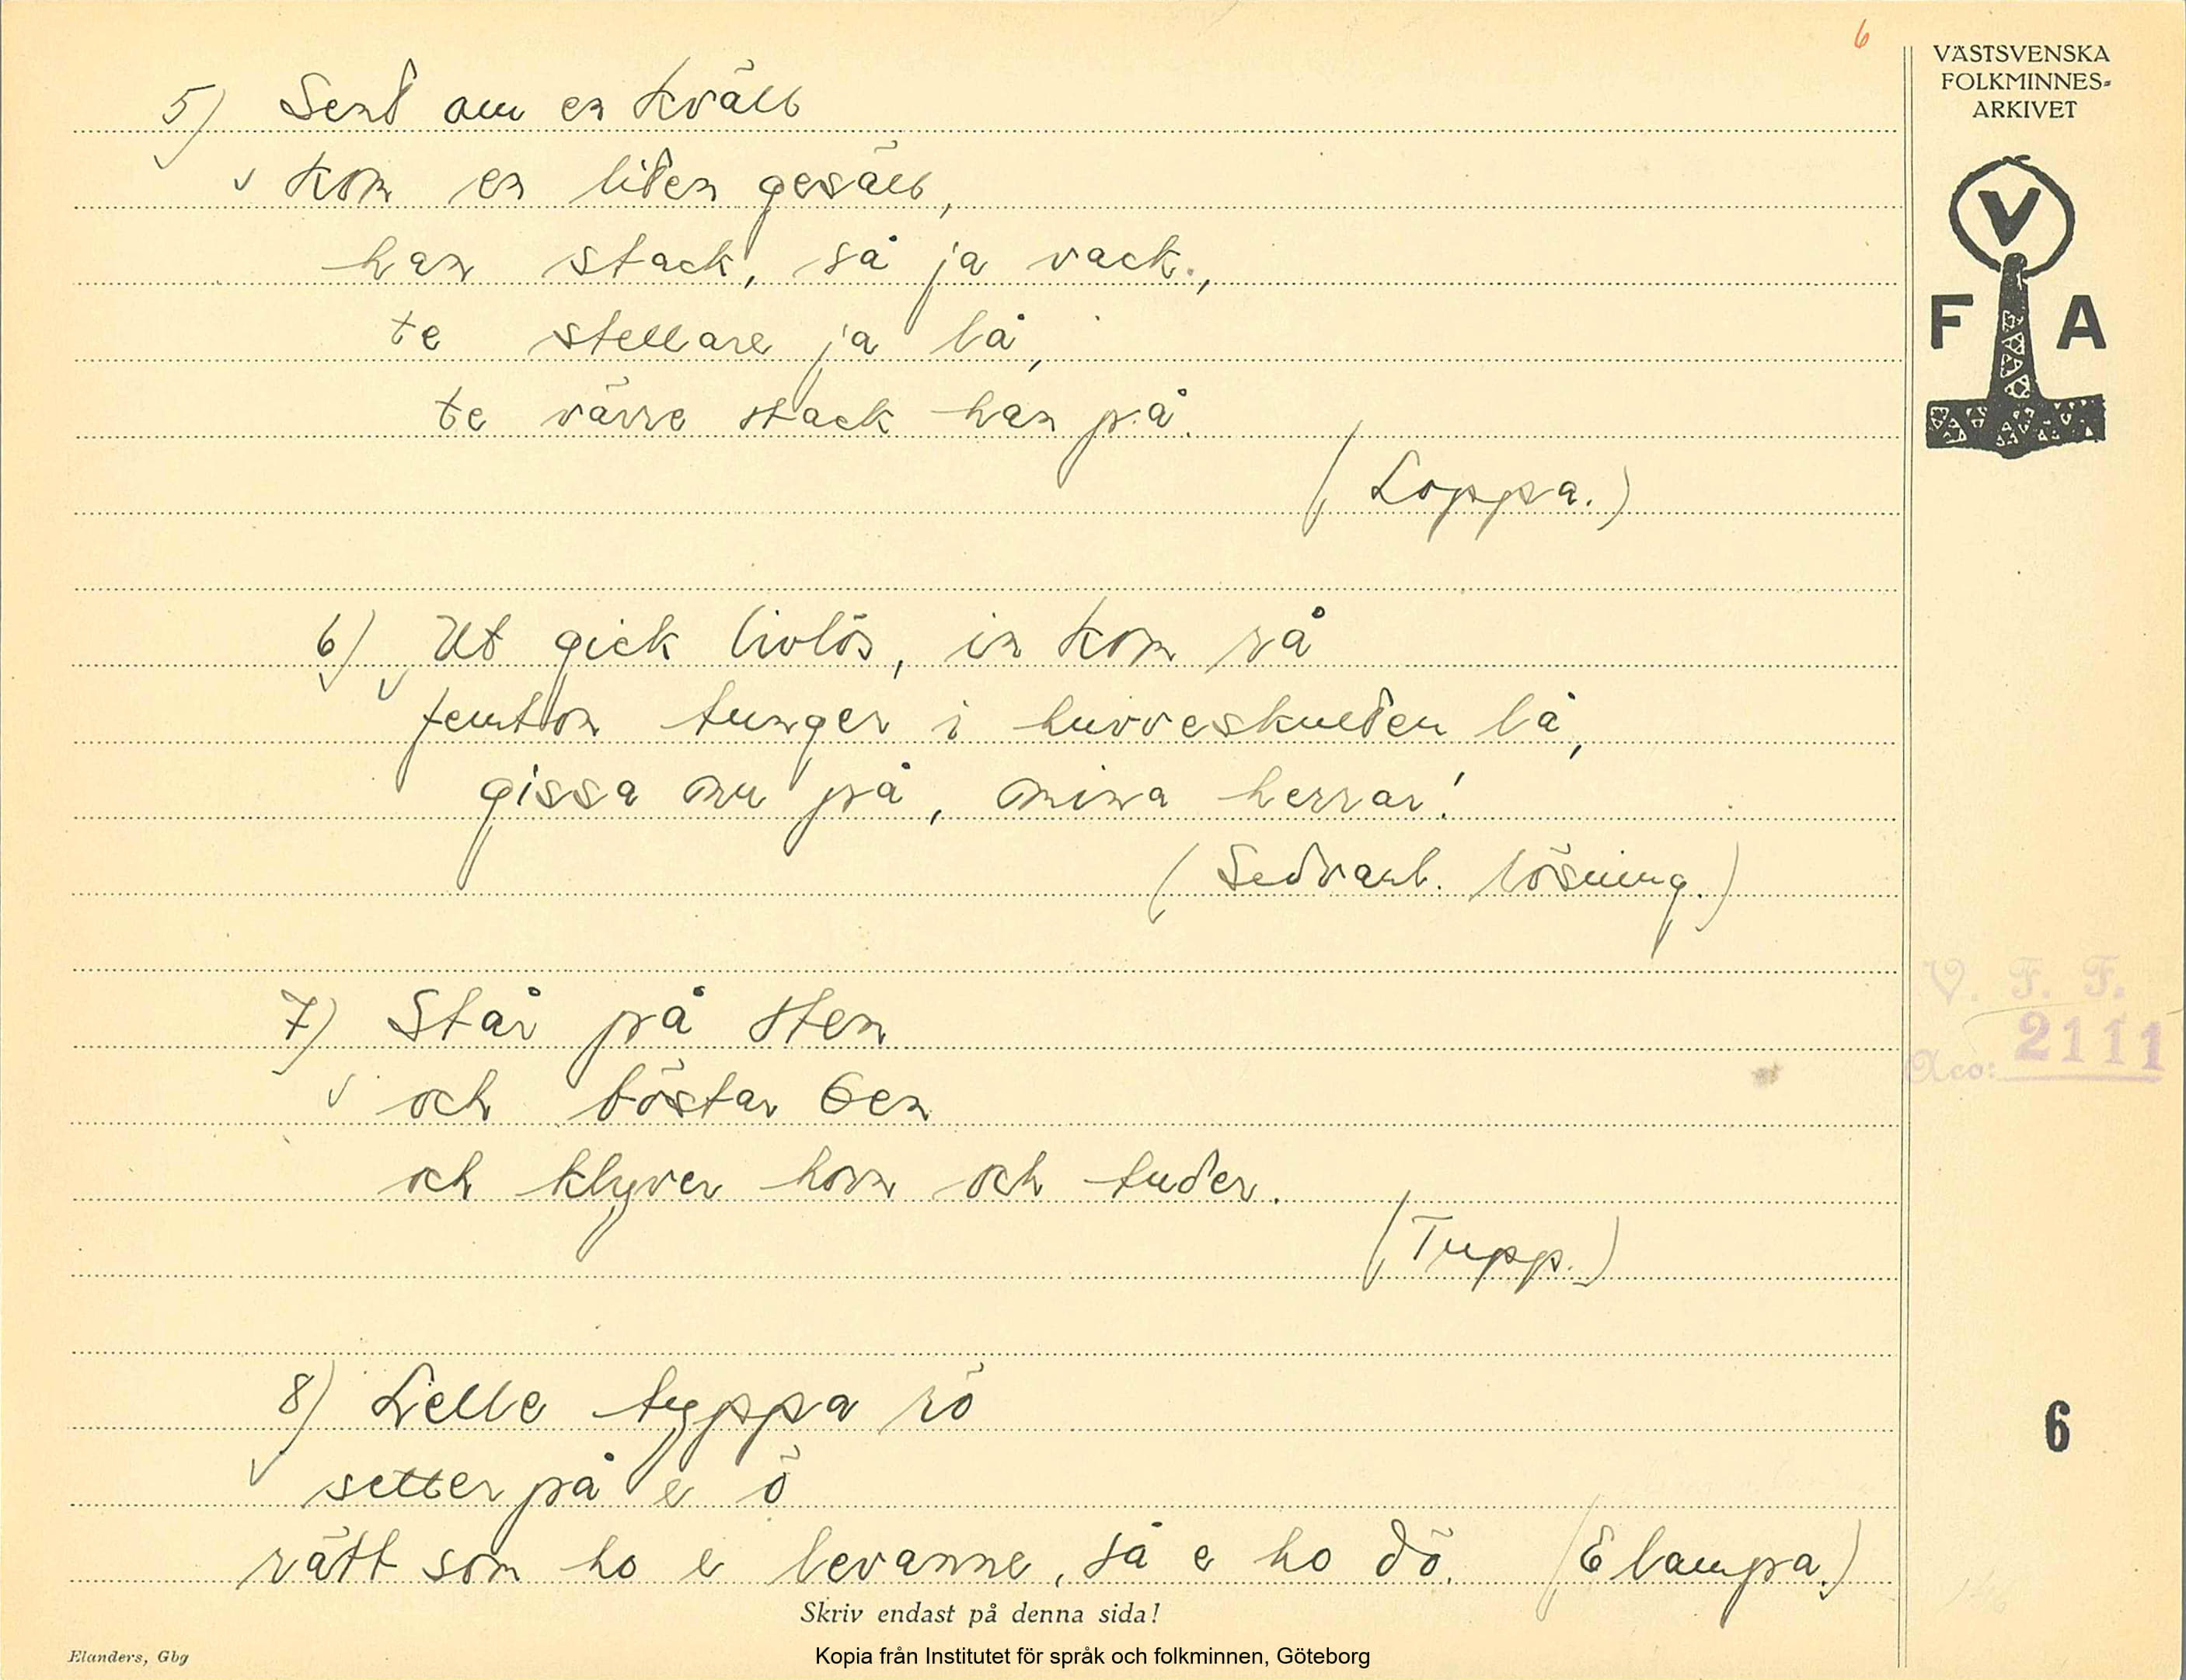 6
VÄSTSVENSKA
FOLKMINNES-
ARKIVET
V
F A
5) Sent om en kväll
kom en liten gesäll,
han stack, så ja vack,
te stellare ja lå,
te värre stack han på.
(Loppa.)
6) Ut gick livlös, in kom rå
femton tunger i huvveskulten lå,
gissa nu på, mina herrar!
(Sedvanl. lösning.)
7) Står på sten
och böstar ben
och klyver horn och tuder.
(Tupp.)
8) Lelle typpa rö
setter på e ö
rätt som ho e levanne, så e ho dö. (E lampa.)
V. F. F.
Acc: 2111
6
Skriv endast på denna sida!
Elanders, Gbg
Kopia från Institutet för språk och folkminnen, Göteborg